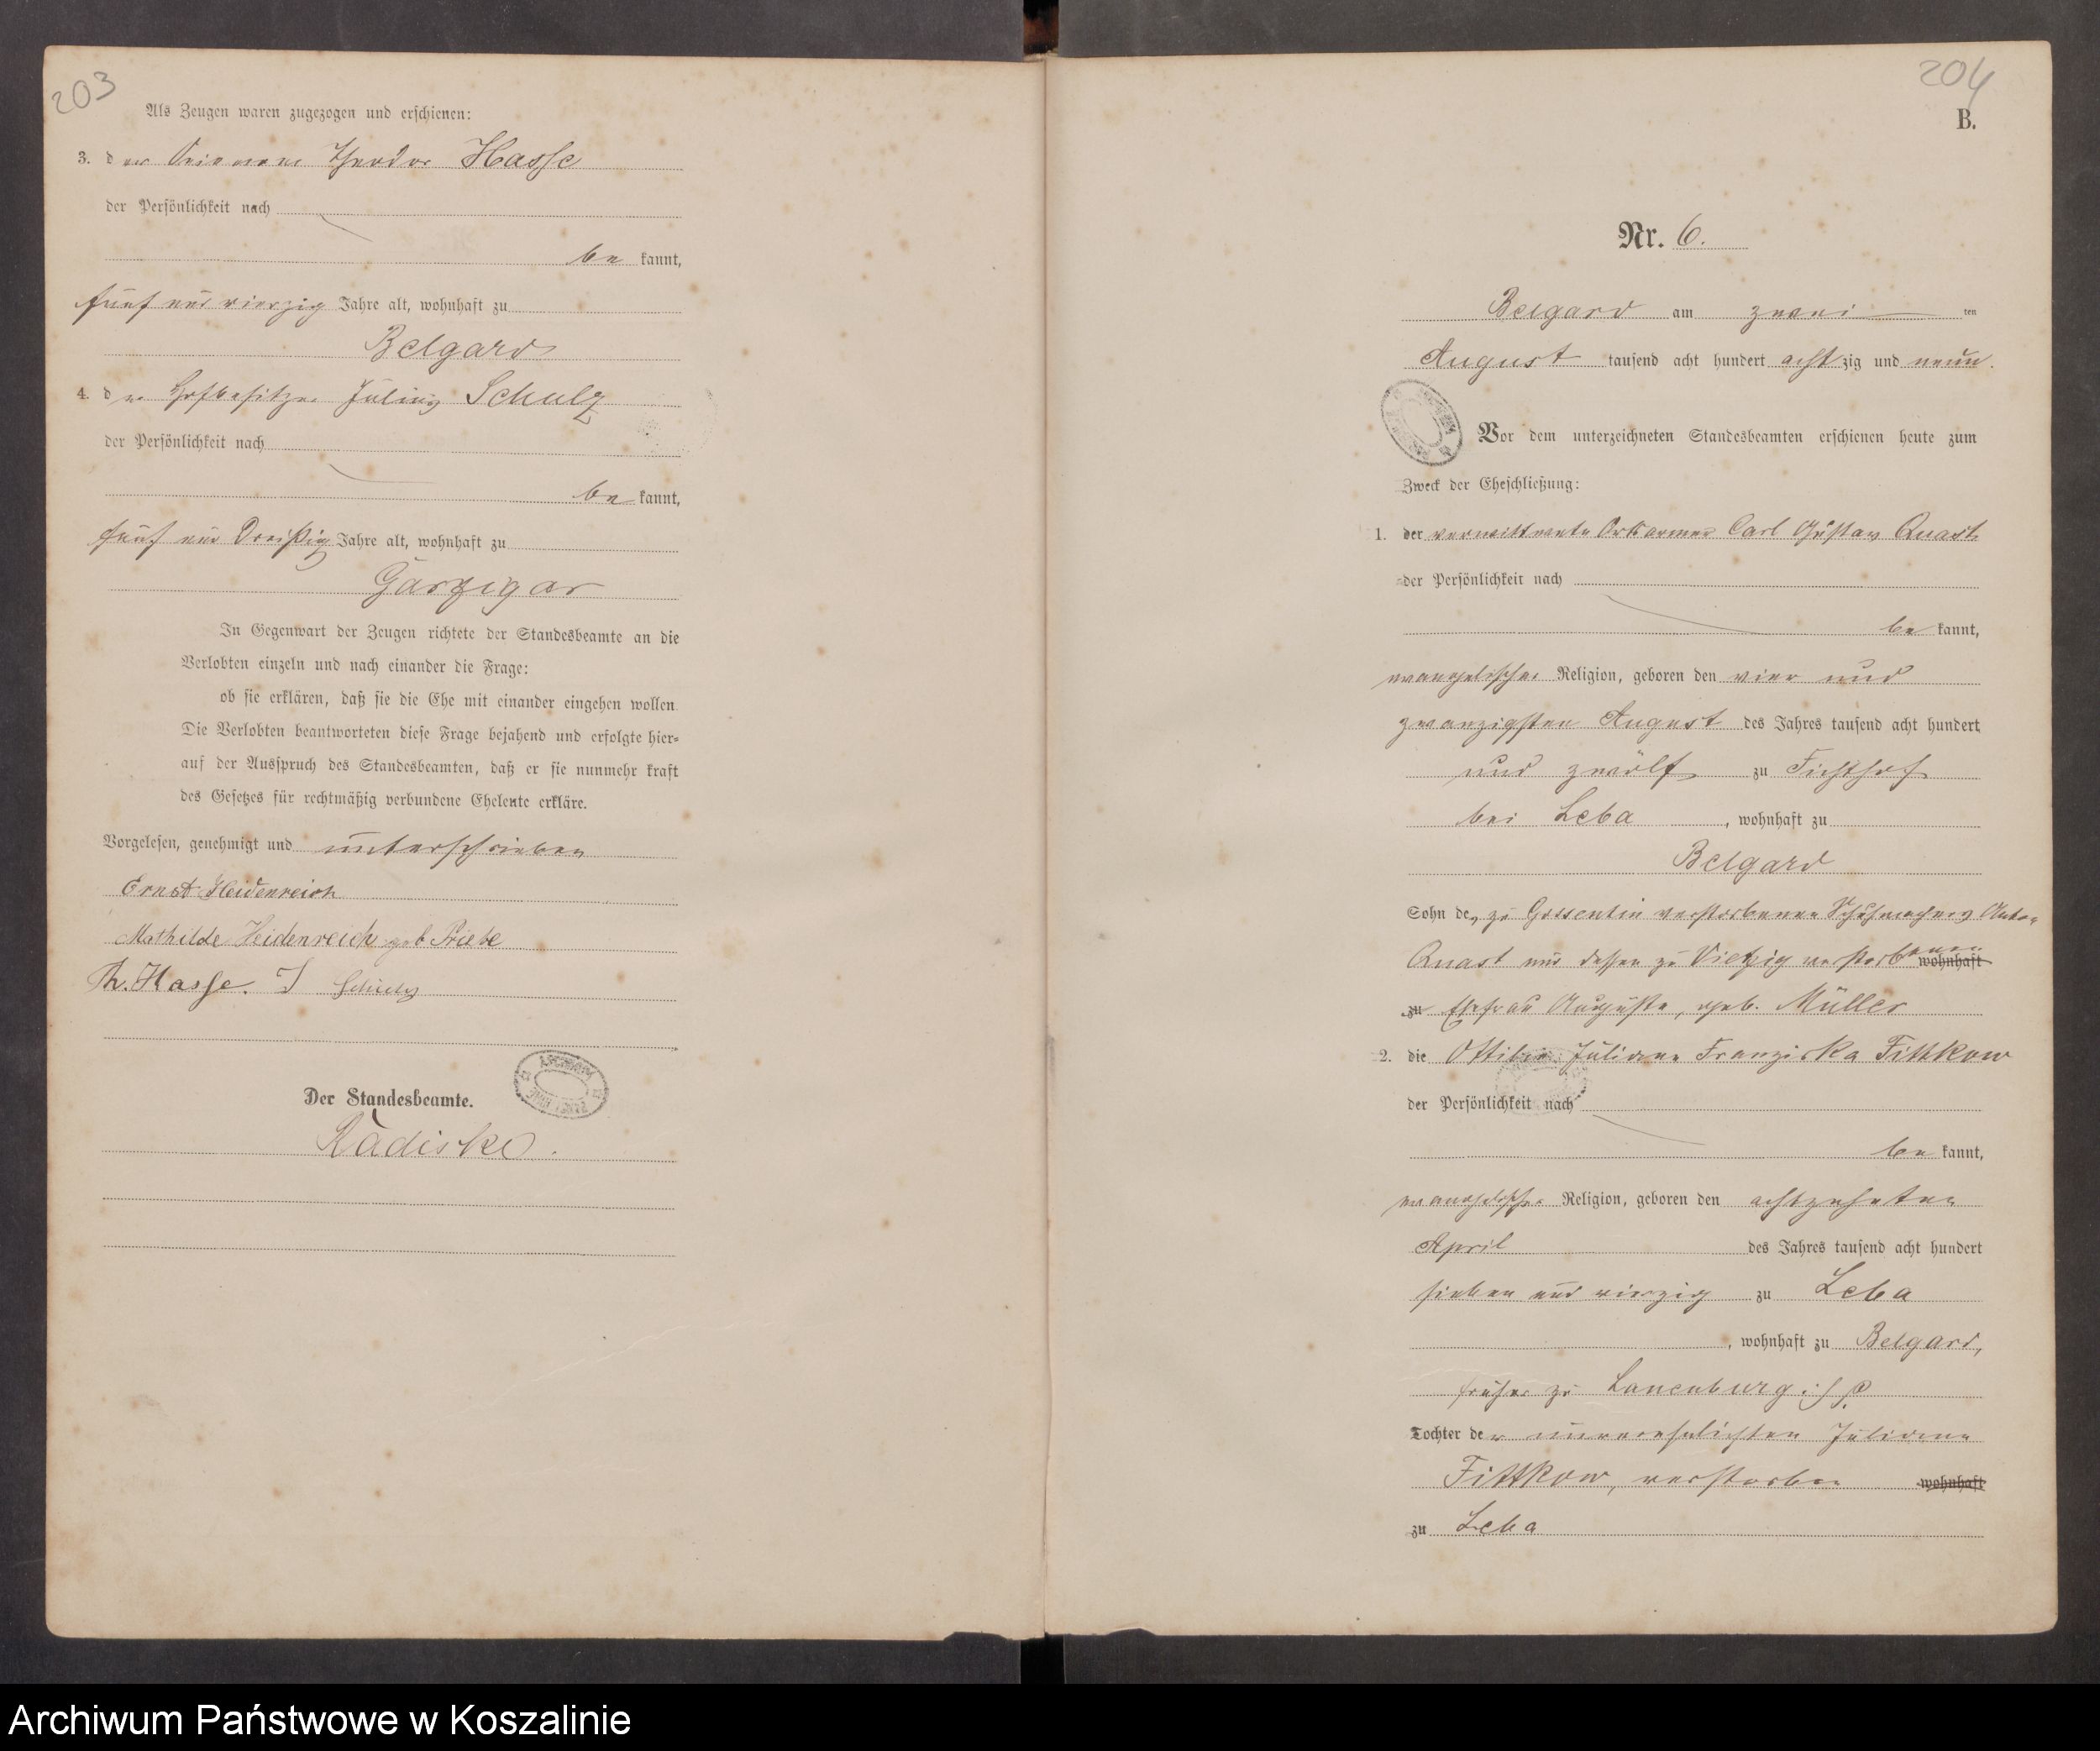 203
Als Zeugen waren zugezogen und erschienen:
3. der Theodor Hasse
der Persönlichkeit nach
be kannt,
fünf und vierzig Jahre alt, wohnhaft zu
Belgard
4. der Hofbesitzer Julius Schulz
der Persönlichkeit nach
be kannt,
fünf und dreißig Jahre alt, wohnhaft zu
Garzigar
In Gegenwart der Zeugen richtete der Standesbeamte an die
Verlobten einzeln und nach einander die Frage:
ob sie erklären, daß sie die Ehe mit einander eingehen wollen.
Die Verlobten beantworteten diese Frage bejahend und erfolgte hier-
auf der Ausspruch des Standesbeamten, daß er sie nunmehr kraft
des Gesetzes für rechtmäßig verbundene Eheleute erkläre.
Vorgelesen, genehmigt und unterschrieben
Ernst Heidenreich
Mathilde Heidenreich geb Priebe
Th. Hasse. J Schulz
Der Standesbeamte.
Radiske.
204
B.
Nr. 6.
Belgard am zwei ten
August tausend acht hundert acht zig und neun.
Vor dem unterzeichneten Standesbeamten erschienen heute zum
Zweck der Eheschließung:
1. der verwittwete Ortsarmer Carl Gustav Quast
der Persönlichkeit nach
be kannt,
evangelischer Religion, geboren den vier und
zwanzigsten August des Jahres tausend acht hundert
und zwölf zu Fichthof
bei Leba, wohnhaft zu
Belgard
Sohn des zu Gossentin verstorbenen Schuhmachers Anton
Quast und dessen zu Vietzig verstorbenen wohnhaft
zu Ehefrau Auguste, geb. Müller
2. die Ottilie Juliane Franziska Fittkow
der Persönlichkeit nach
be kannt,
evangelischer Religion, geboren den achtzehnten
April des Jahres tausend acht hundert
sieben und vierzig zu Leba
, wohnhaft zu Belgard,
früher zu Lauenburg i/P.
Tochter der unverehelichten Juliane
Fittkow, verstorben wohnhaft
zu Leba
Archiwum Państwowe w Koszalinie